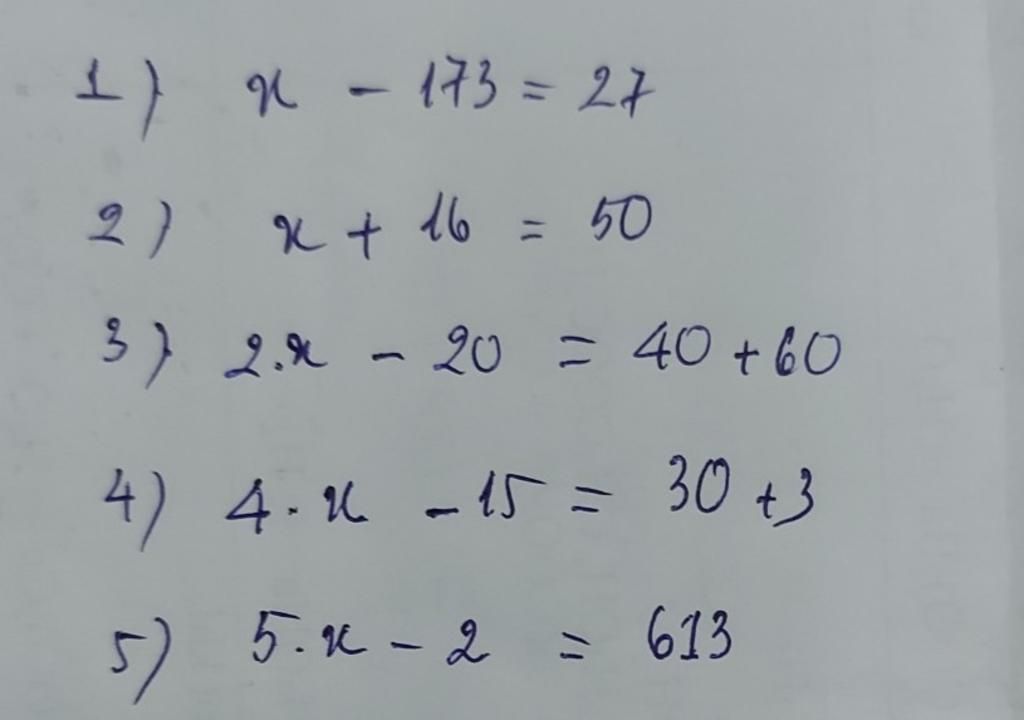 1) x - 173 = 27
2) x + 16 = 50
3) 2.x - 20 = 40 + 60
4) 4.x - 15 = 30 + 3
5) 5.x - 2 = 613